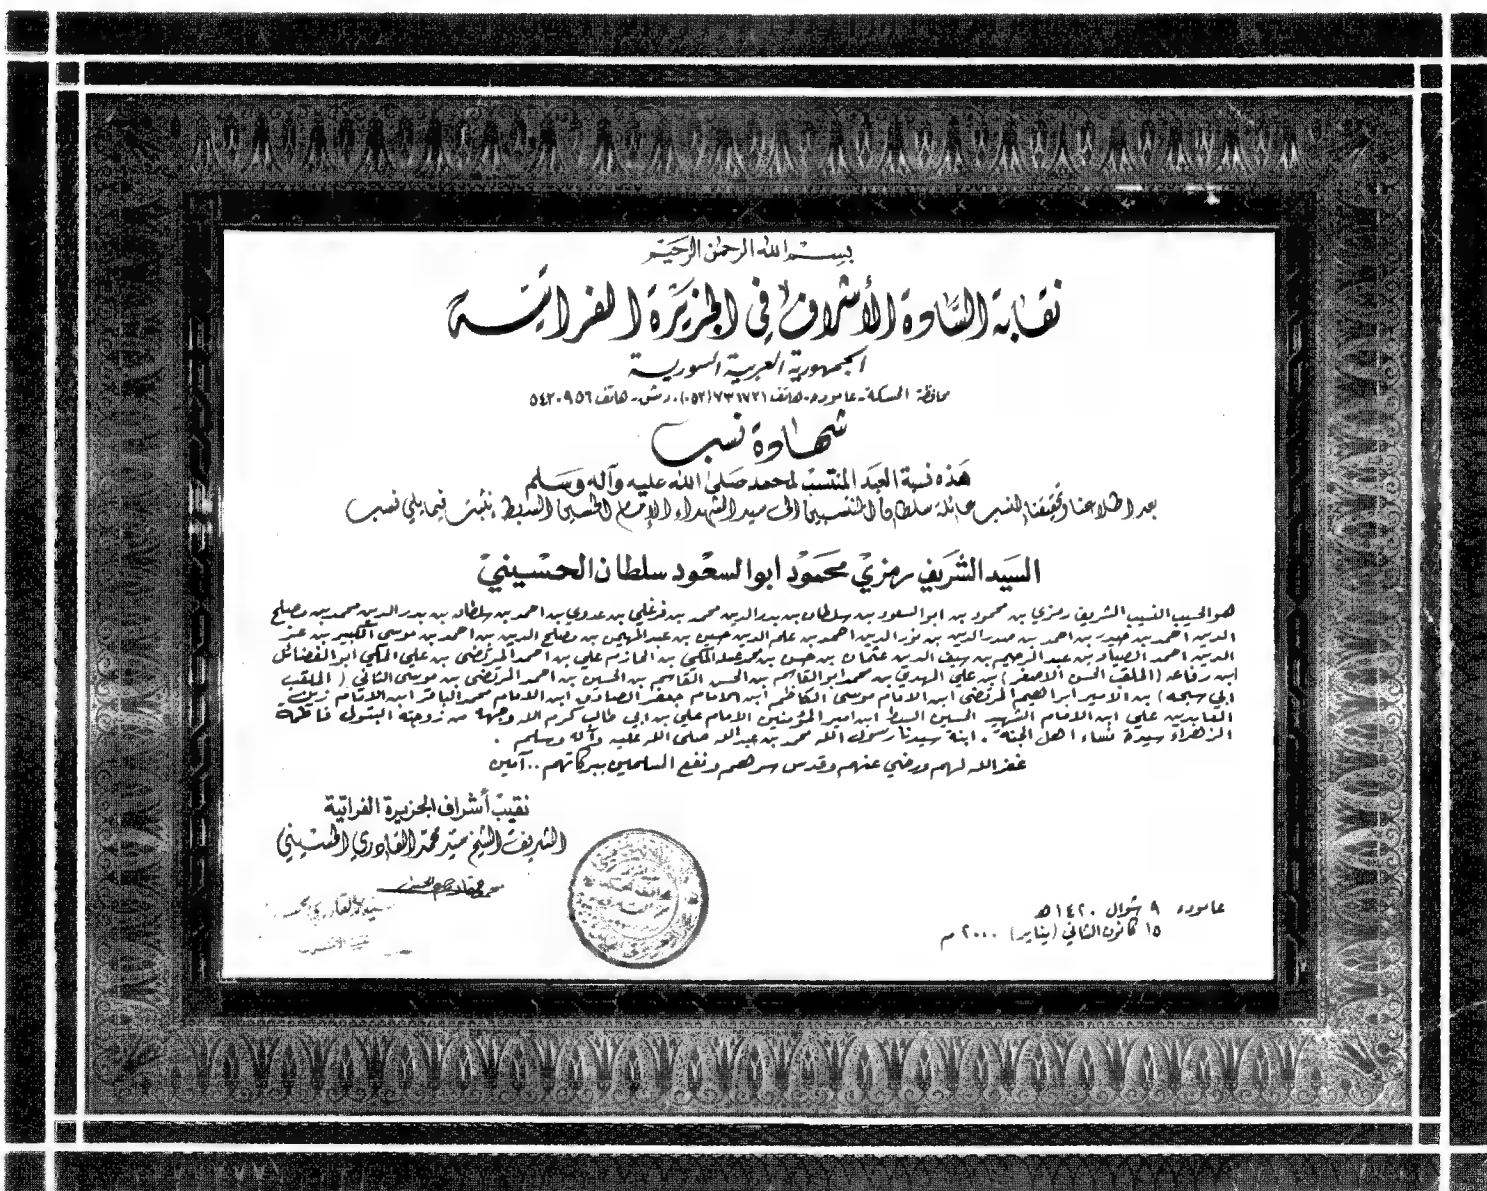 بسم الله الرحمن الرحيم
نقابة السادة الأشراف في الجزيرة الفراتية
الجمهورية العربية السورية
محافظة الحسكة - عاموده - هاتف ٧٣١٧٢١ (٠٥٢) . دمشق - هاتف ٥٤٢٠٩٥٦
شهادة نسب
هذه نسبة العبد المنتسب لمحمد صلى الله عليه وآله وسلم
بعد اطلاعنا وتحقيقنا لنسب عائلة سلطان المنتسبين الى سيد الشهداء الإمام الحسين السبط نثبت فيما يلي نسب
السيد الشريف رمزي محمود ابو السعود سلطان الحسيني
هو الحسيب النسيب الشريف رمزي بن محمود بن ابو السعود بن سلطان بن بدر الدين محمد بن فرغلي بن عدوي بن احمد بن سلطان بن بدر الدين محمد بن مصلح
الدين احمد بن حيدر بن احمد بن صدر الدين بن نور الدين احمد بن علم الدين حسين بن عبد المهيمن بن مصلح الدين بن احمد بن موسى الكبير بن عز
الدين احمد الصياد بن عبد الرحيم بن سيف الدين عثمان بن حسن بن محمد عسلة المكي بن الحازم علي بن احمد المرتضى بن علي المكي ابو الفضائل
ابن رفاعه (الملقب الحسن الاصغر) بن علي المهدي بن محمد ابو القاسم بن الحسن القاسم بن الحسين بن احمد المرتضى بن موسى الثاني (الملقب
ابي سبحه) بن الامير ابراهيم المرتضى ابن الامام موسى الكاظم ابن الامام جعفر الصادق ابن الامام محمد الباقر ابن الامام زين
العابدين علي ابن الامام الشهيد الحسين السبط ابن امير المؤمنين الامام علي بن ابي طالب كرم الله وجهه من زوجته البتول فاطمة
الزهراء سيدة نساء اهل الجنة . ابنة سيدنا رسول الله محمد بن عبدالله صلى الله عليه وآله وسلم .
غفر الله لهم ورضي عنهم وقدس سرهم ونفع المسلمين ببركاتهم .. آمين
نقيب أشراف الجزيرة الفراتية
الشريف الشيخ سيد محمد القادري الحسيني
عاموده ٩ شوال ١٤٢٠ هـ
١٥ كانون الثاني (يناير) ٢٠٠٠ م